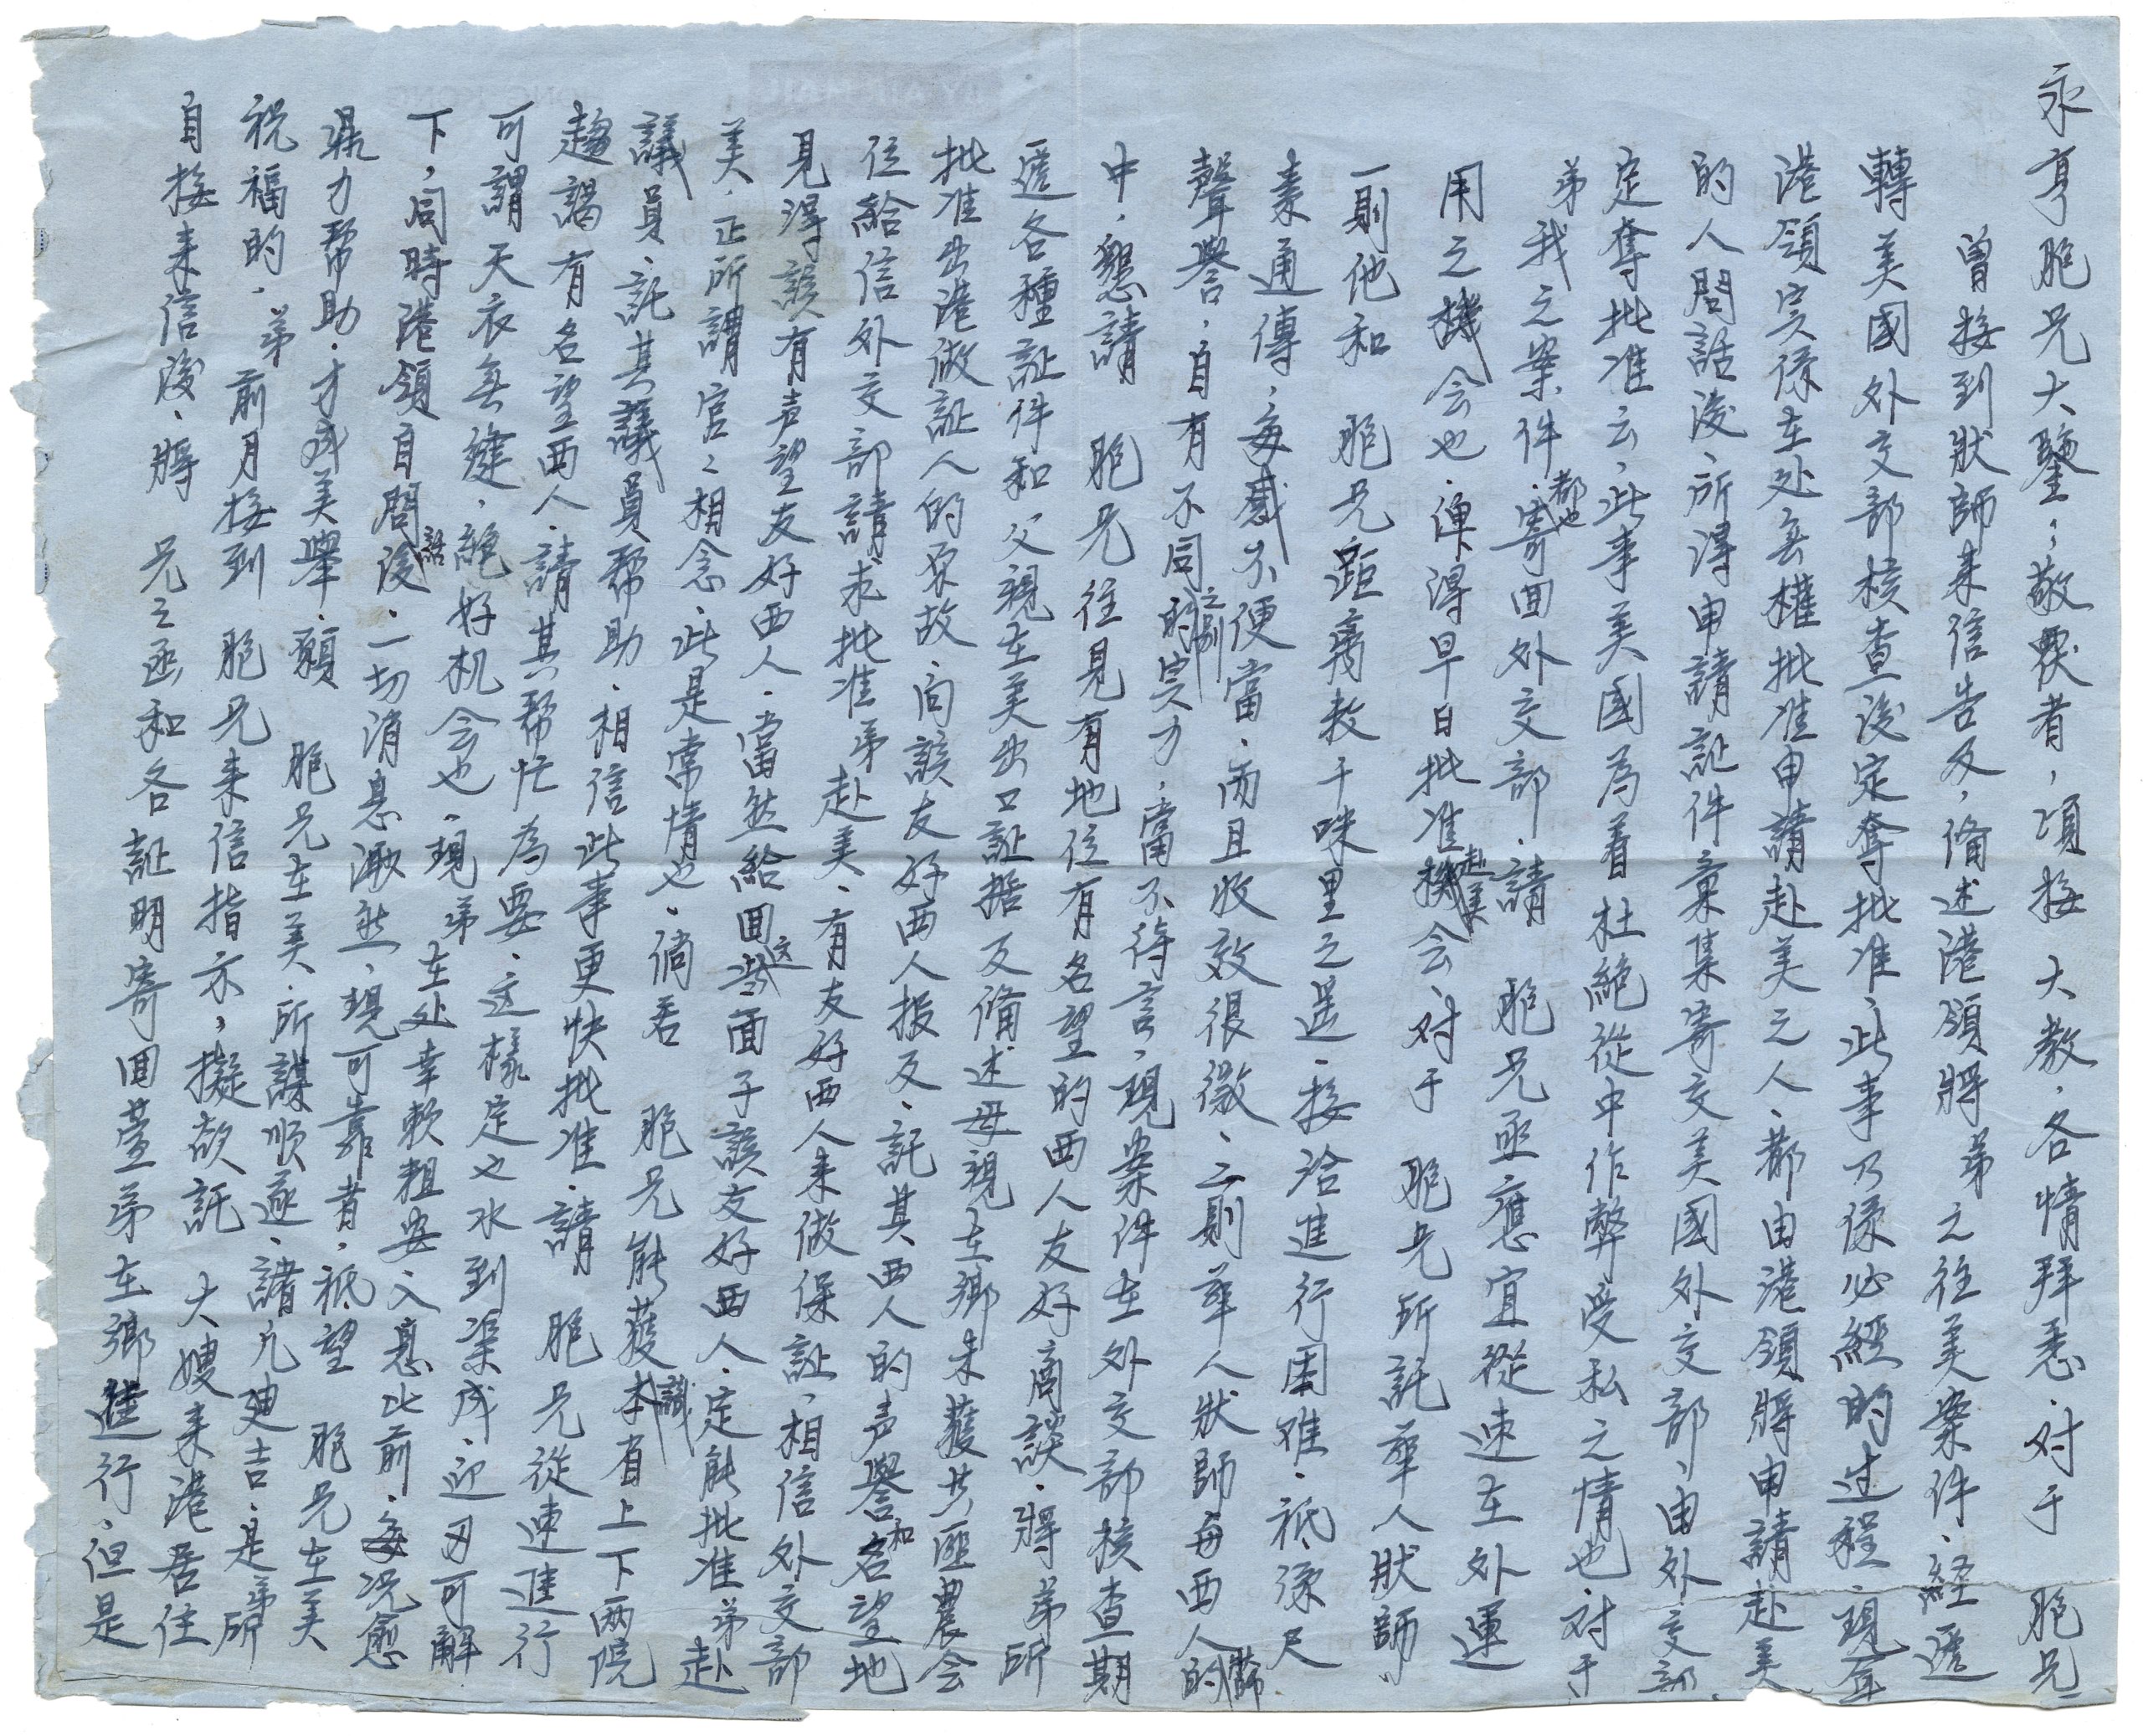 永亨胞兄大鑒；敬覆者，項接大教，各情拜悉．对于　胞兄
曾接到狀師來信告及，備述港領將弟之往美案件．経遞
轉美國外交部核查後定奪批准，此事乃係必經的过程．現在
港領实係在处無權批准申請赴美之人．都由港領將申請赴美
的人問話後，所得申請証件彙集寄交美國外交部，由外交部
定奪批准云，此事美國為着杜絕從中作弊受私之情也．对于
弟我之案件．都也寄回外交部．請　胞兄亟應宜從速在外運
用之機会也．俾得早日批准赴美機会．对于　胞兄所託華人狀師，
一則他和　胞兄距离数千咪里之遥．接洽進行困难．祗係尺
素通傳，每感不便當．而且收效很微．二則華人狀師與西人的
聲譽，自有不同之別的实力．當不待言．現案件在外交部核查期
中，懇請　胞兄往見有地位有名望的西人友好商談．將弟所
遞各種証件和父親在美出口証据及備述母親在鄉未獲共匪農会
批准出港做証人的原故．向該友好西人报及．託其西人的声譽和名望地
位給信外交部請求批准弟赴美．有友好西人來做保証．相信外交部
見得該有声望友好西人．當然給回这些面子該友好西人．定能批准弟赴
美．正所謂官官相念．此是常情也．倘若　胞兄能獲識本省上下兩院
議員．託其議員帮助．相信此事更快批准．請　胞兄從速進行
趨謁有名望西人．請其帮忙為要．这樣定也水到渠成．迎刃可解
可謂天衣無縫．絕好机会也．現弟在处幸軟粗安．入息比前每况愈
下，同時港領自問話後．一切消息渺然．現可靠者．祗望　胞兄在美
鼎力帮助．才成美舉．願　胞兄在美．所謀順遂．諸凢廸吉．是弟所
祝福的．弟前月接到　胞兄來信指示，擬欲託　大嫂來港居住
自接來信後．將　兄之函和各証明寄回萱弟在鄉進行．但是